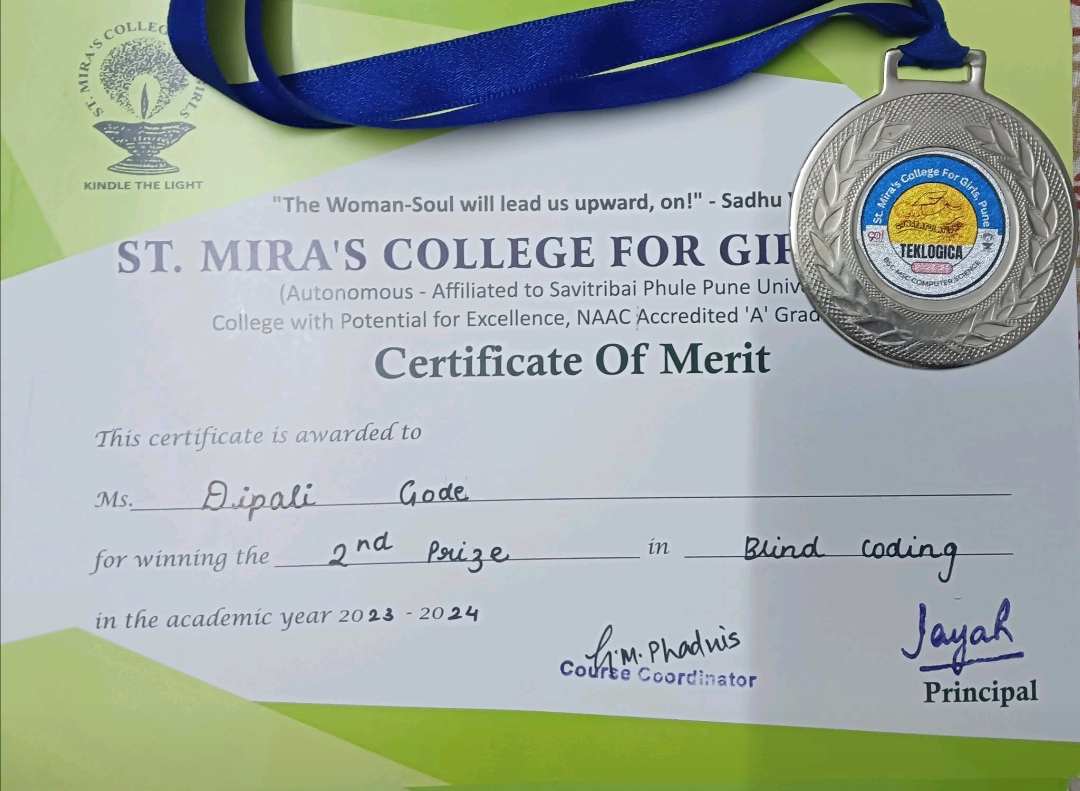 ST. MIRA'S COLLEG
IRLS
KINDLE THE LIGHT
"The Woman-Soul will lead us upward, on!" - Sadhu
ST. MIRA'S COLLEGE FOR GIR
(Autonomous - Affiliated to Savitribai Phule Pune Univ
College with Potential for Excellence, NAAC Accredited 'A' Grad
Certificate Of Merit
St. Mira's College For Girls, Pune
TEKLOGICA
COMPUTER SCIENCE
This certificate is awarded to
Ms. Dipali Gode
for winning the 2nd Prize in Blind coding
in the academic year 2023 - 2024
M. Phadnis
Course Coordinator
Jayah
Principal